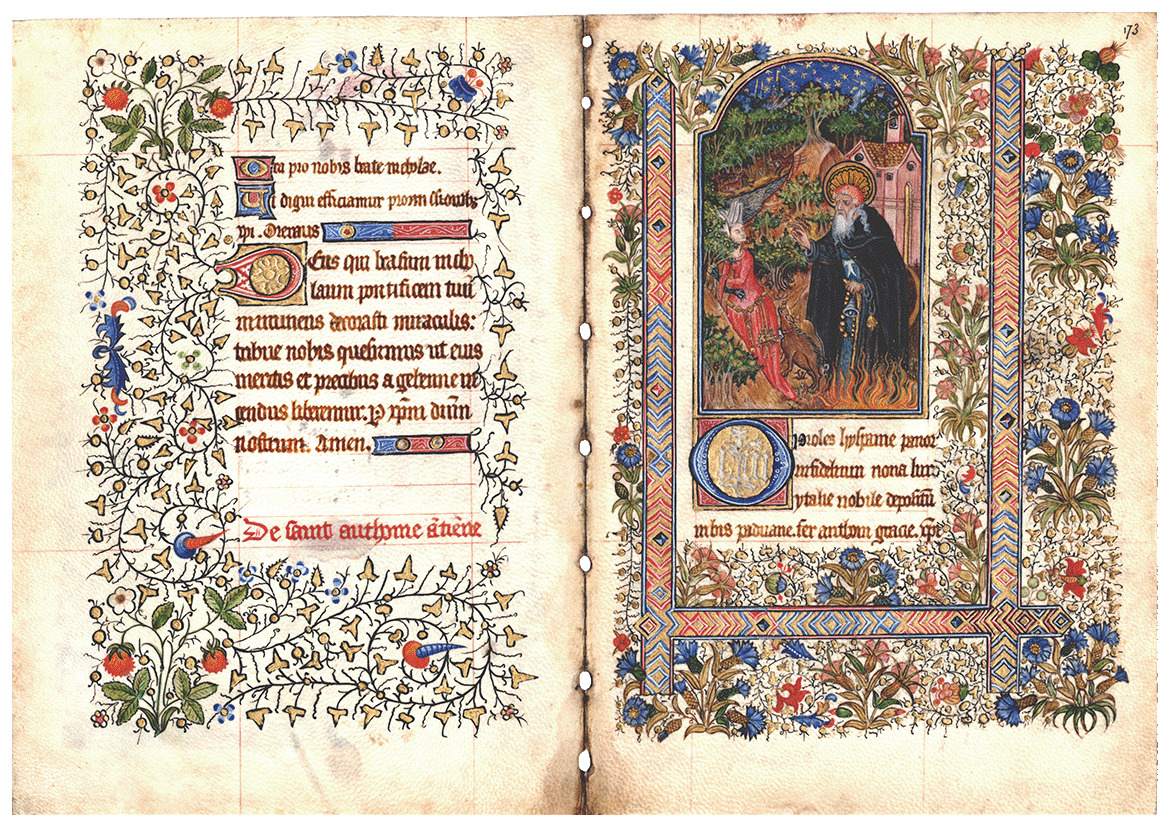 Ora pro nobis beate nicholae.
Ut digni efficiamur promissionibus
xpi. Oremus
Deus qui beatum nicho
laum pontificem tuu
innumeris decorasti miraculis:
tribue nobis quesumus ut eius
meritis et precibus a gehenne in
cendiis liberemur. P xp̄m dn̄m
nostrum. Amen.
De sanct anthonie
173
O proles hyspanie pavor
infidelium nova lux
ytalie nobile depositū
urbis paduane. fer anthoni gracie. xpi